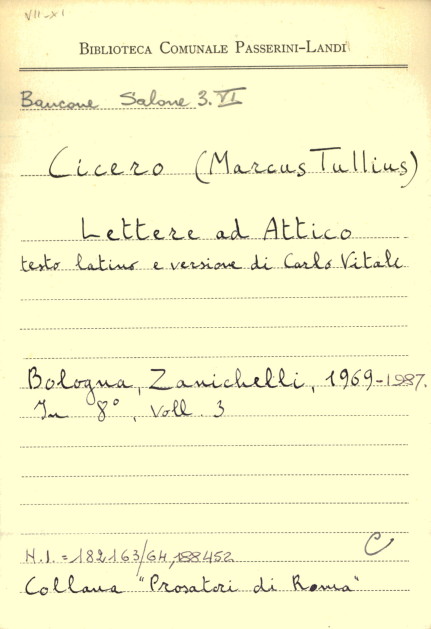 VII-XI
BIBLIOTECA COMUNALE PASSERINI-LANDI
Bancone Salone 3.VI
Cicero (Marcus Tullius)
Lettere ad Attico
testo latino e versione di Carlo Vitali
Bologna, Zanichelli, 1969-1987.
In 8°, Voll. 3
C
N.I. = 182163/64, 188452
Collana "Prosatori di Roma"